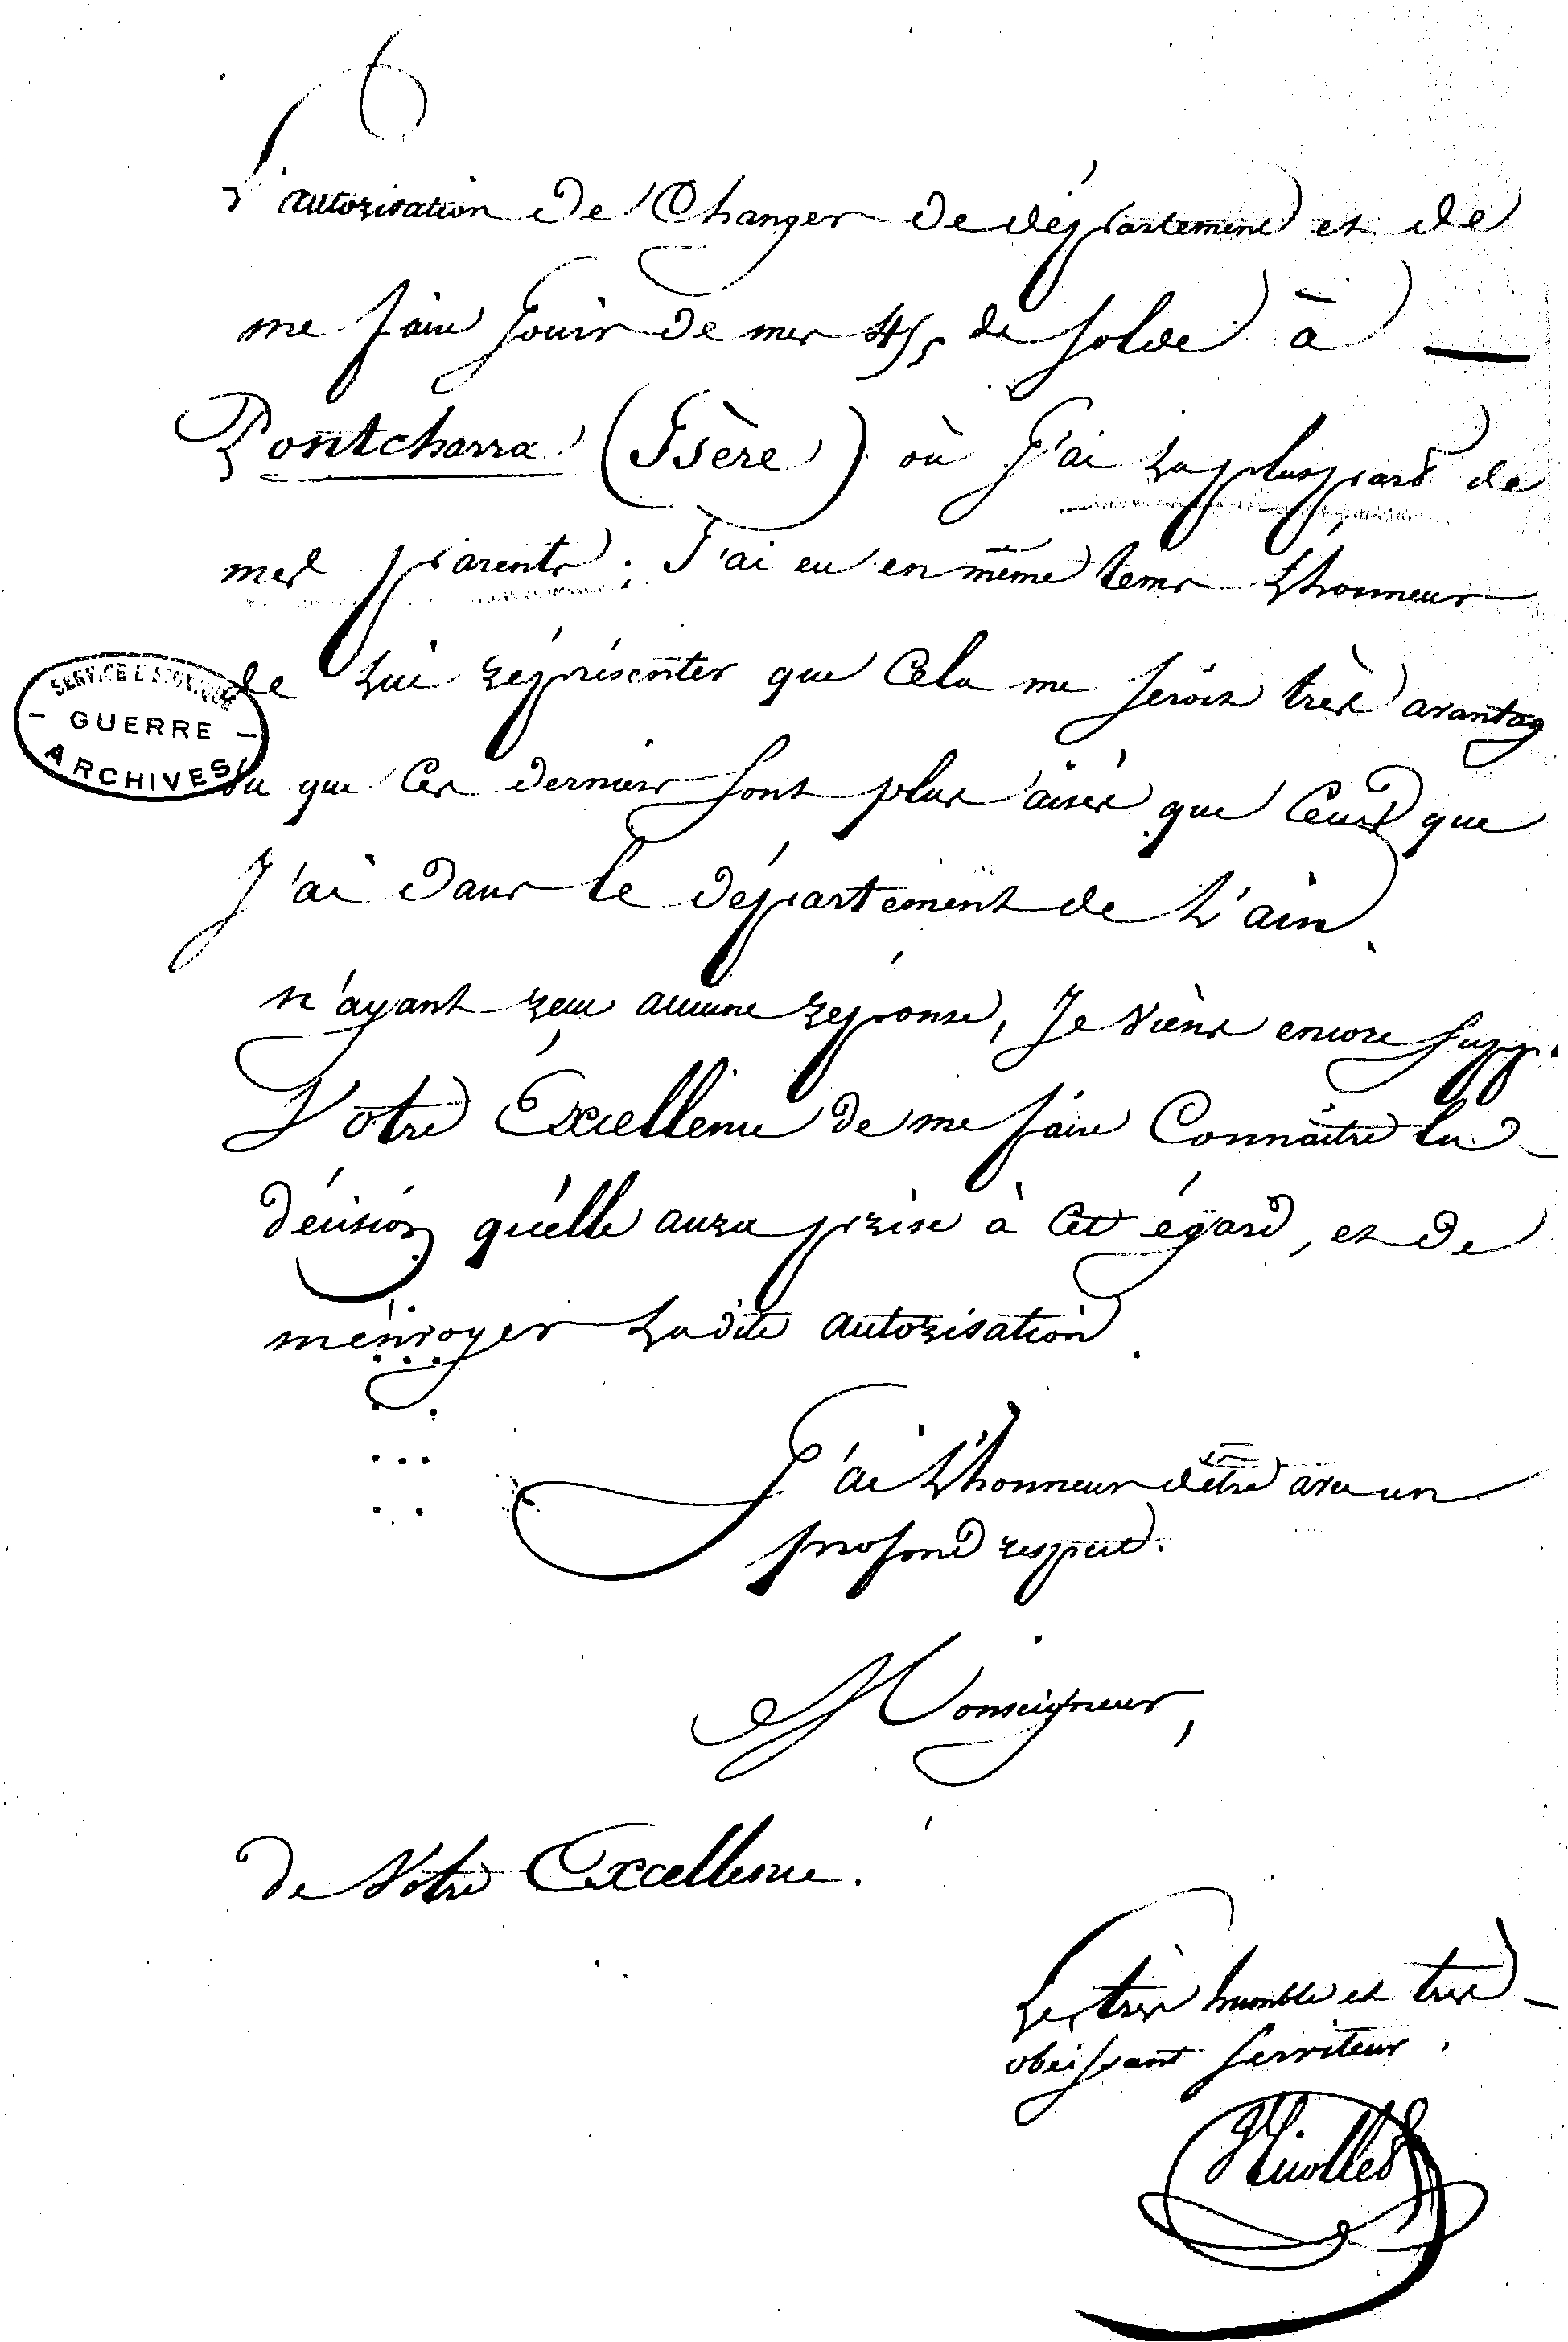 l'autorisation de Changer de département et de
me faire Jouir de mes 4/5 de solde à —
Pontcharra (Isère) où J'ai la pluspart de
mes parents. J'ai eu en même tems l'honneur
de lui réprésenter que Cela me seroit très avantag
vu que Ces derniers sont plus aisés que Ceux que
J'ai dans le département de L'ain.
n'ayant reçu aucune réponse, Je viens encore supp.
Votre Éxcellence de me faire Connaître la
décision qu'elle aura prise à Cet égard, et de
m'envoyer ladite autorisation.
J'ai l'honneur d'être avec un
profond respect.
Monseigneur,
de Votre Excellence.
Le très humble et très
obéissant serviteur.
SERVICE HISTORIQUE
- GUERRE -
ARCHIVES